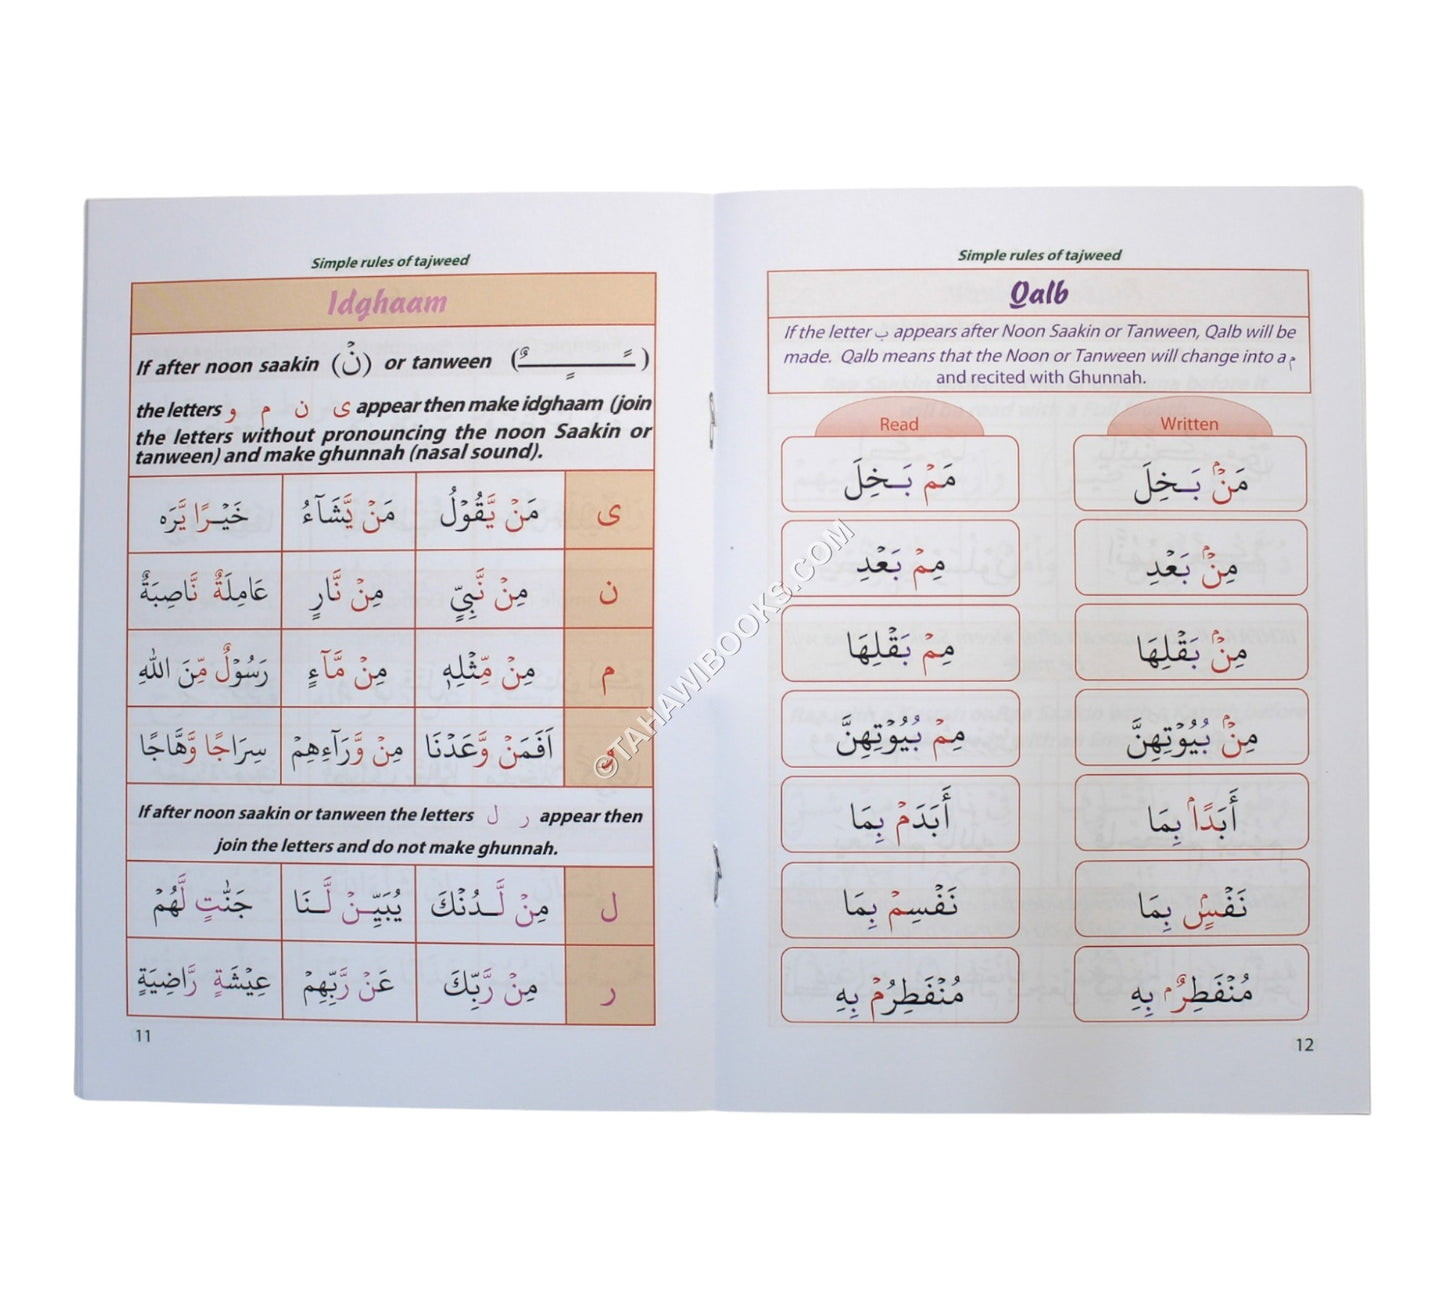 Simple rules of tajweed
Idghaam
If after noon saakin (نْ) or tanween (ـًـٍـٌ)
the letters و م ن ى appear then make idghaam (join
the letters without pronouncing the noon Saakin or
tanween) and make ghunnah (nasal sound).
ى مَنْ يَّقُوْلُ مَنْ يَّشَآءُ خَيْـرًا يَّرَه
ن مِنْ نَّبِيٍّ مِنْ نَّارٍ عَامِلَةٌ نَّاصِبَةٌ
م مِنْ مِّثْلِهٖ مِنْ مَّآءٍ رَسُوْلٌ مِّنَ اللهِ
و اَفَمَنْ وَّعَدْنَا مِنْ وَّرَآءِهِمْ سِرَاجًا وَّهَّاجًا
If after noon saakin or tanween the letters ل ر appear then
join the letters and do not make ghunnah.
ل مِنْ لَّـدُنْكَ يُبَيِّـنْ لَّـنَا جَنّٰتٍ لَّهُمْ
ر مِنْ رَّبِّكَ عَنْ رَّبِّهِمْ عِيْشَةٍ رَّاضِيَةٍ
11
Simple rules of tajweed
Qalb
If the letter ب appears after Noon Saakin or Tanween, Qalb will be
made. Qalb means that the Noon or Tanween will change into a م
and recited with Ghunnah.
Read Written
مَنْۢ بَـخِلَ مَمْ بَـخِلَ
مِنْۢ بَعْدِ مِمْ بَعْدِ
مِنْۢ بَقْلِهَا مِمْ بَقْلِهَا
مِنْۢ بُيُوْتِهِنَّ مِمْ بُيُوْتِهِنَّ
أَبَدًاۢ بِمَا أَبَدَمْ بِمَا
نَفْسٍۢ بِمَا نَفْسِمْ بِمَا
مُنْفَطِرٌۢ بِهِ مُنْفَطِرُمْ بِهِ
12
©TAHAWIBOOKS.COM